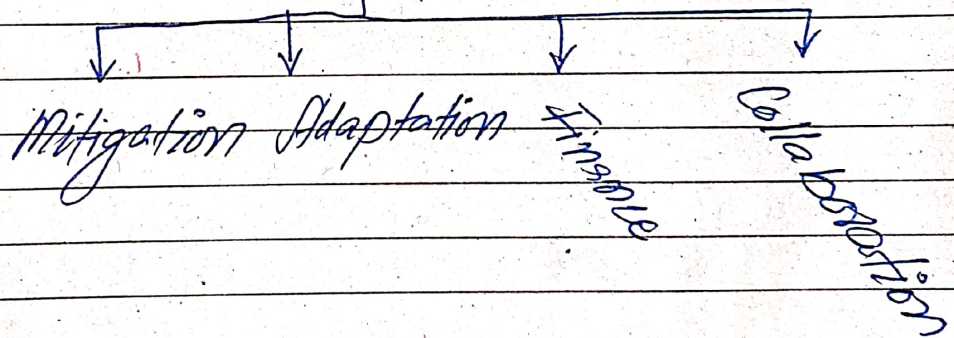 Mitigation Adaptation Finance Collaboration